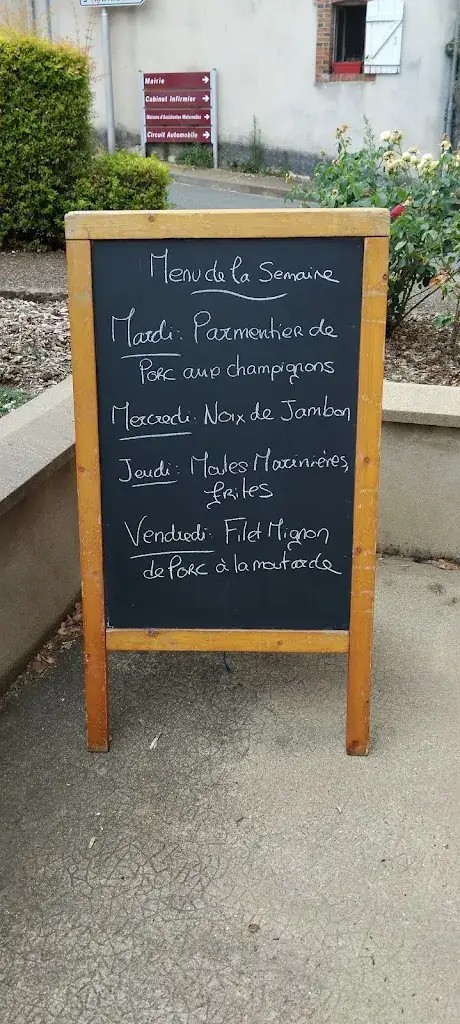 Mairie
Cabinet Infirmier
Maison d'Assistantes Maternelles
Circuit Automobile
Menu de la Semaine
Mardi: Parmentier de
Porc aux champignons
Mercredi: Noix de Jambon
Jeudi: Moules Marinières,
frites
Vendredi: Filet Mignon
de Porc à la moutarde